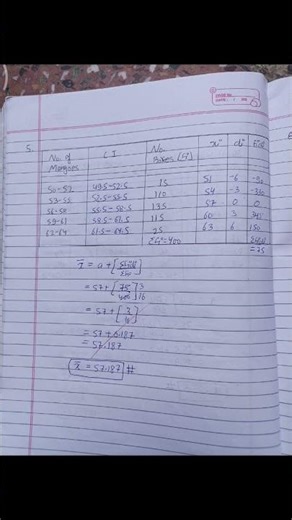 5.
No. of Mangoes | C.I | No. Boxes (fi) | xi | di | fidi
50-52 | 49.5-52.5 | 15 | 51 | -6 | -90
53-55 | 52.5-55.5 | 110 | 54 | -3 | -330
56-58 | 55.5-58.5 | 135 | 57 | 0 | 0
59-61 | 58.5-61.5 | 115 | 60 | 3 | 345
62-64 | 61.5-64.5 | 25 | 63 | 6 | 150
Σfi=400 | Σfidi
= 75
x̄ = a + [Σfidi/Σfi]
= 57 + [75/400] 3/16
= 57 + [3/16]
= 57 + 0.187
= 57.187
x̄ = 57.187 #